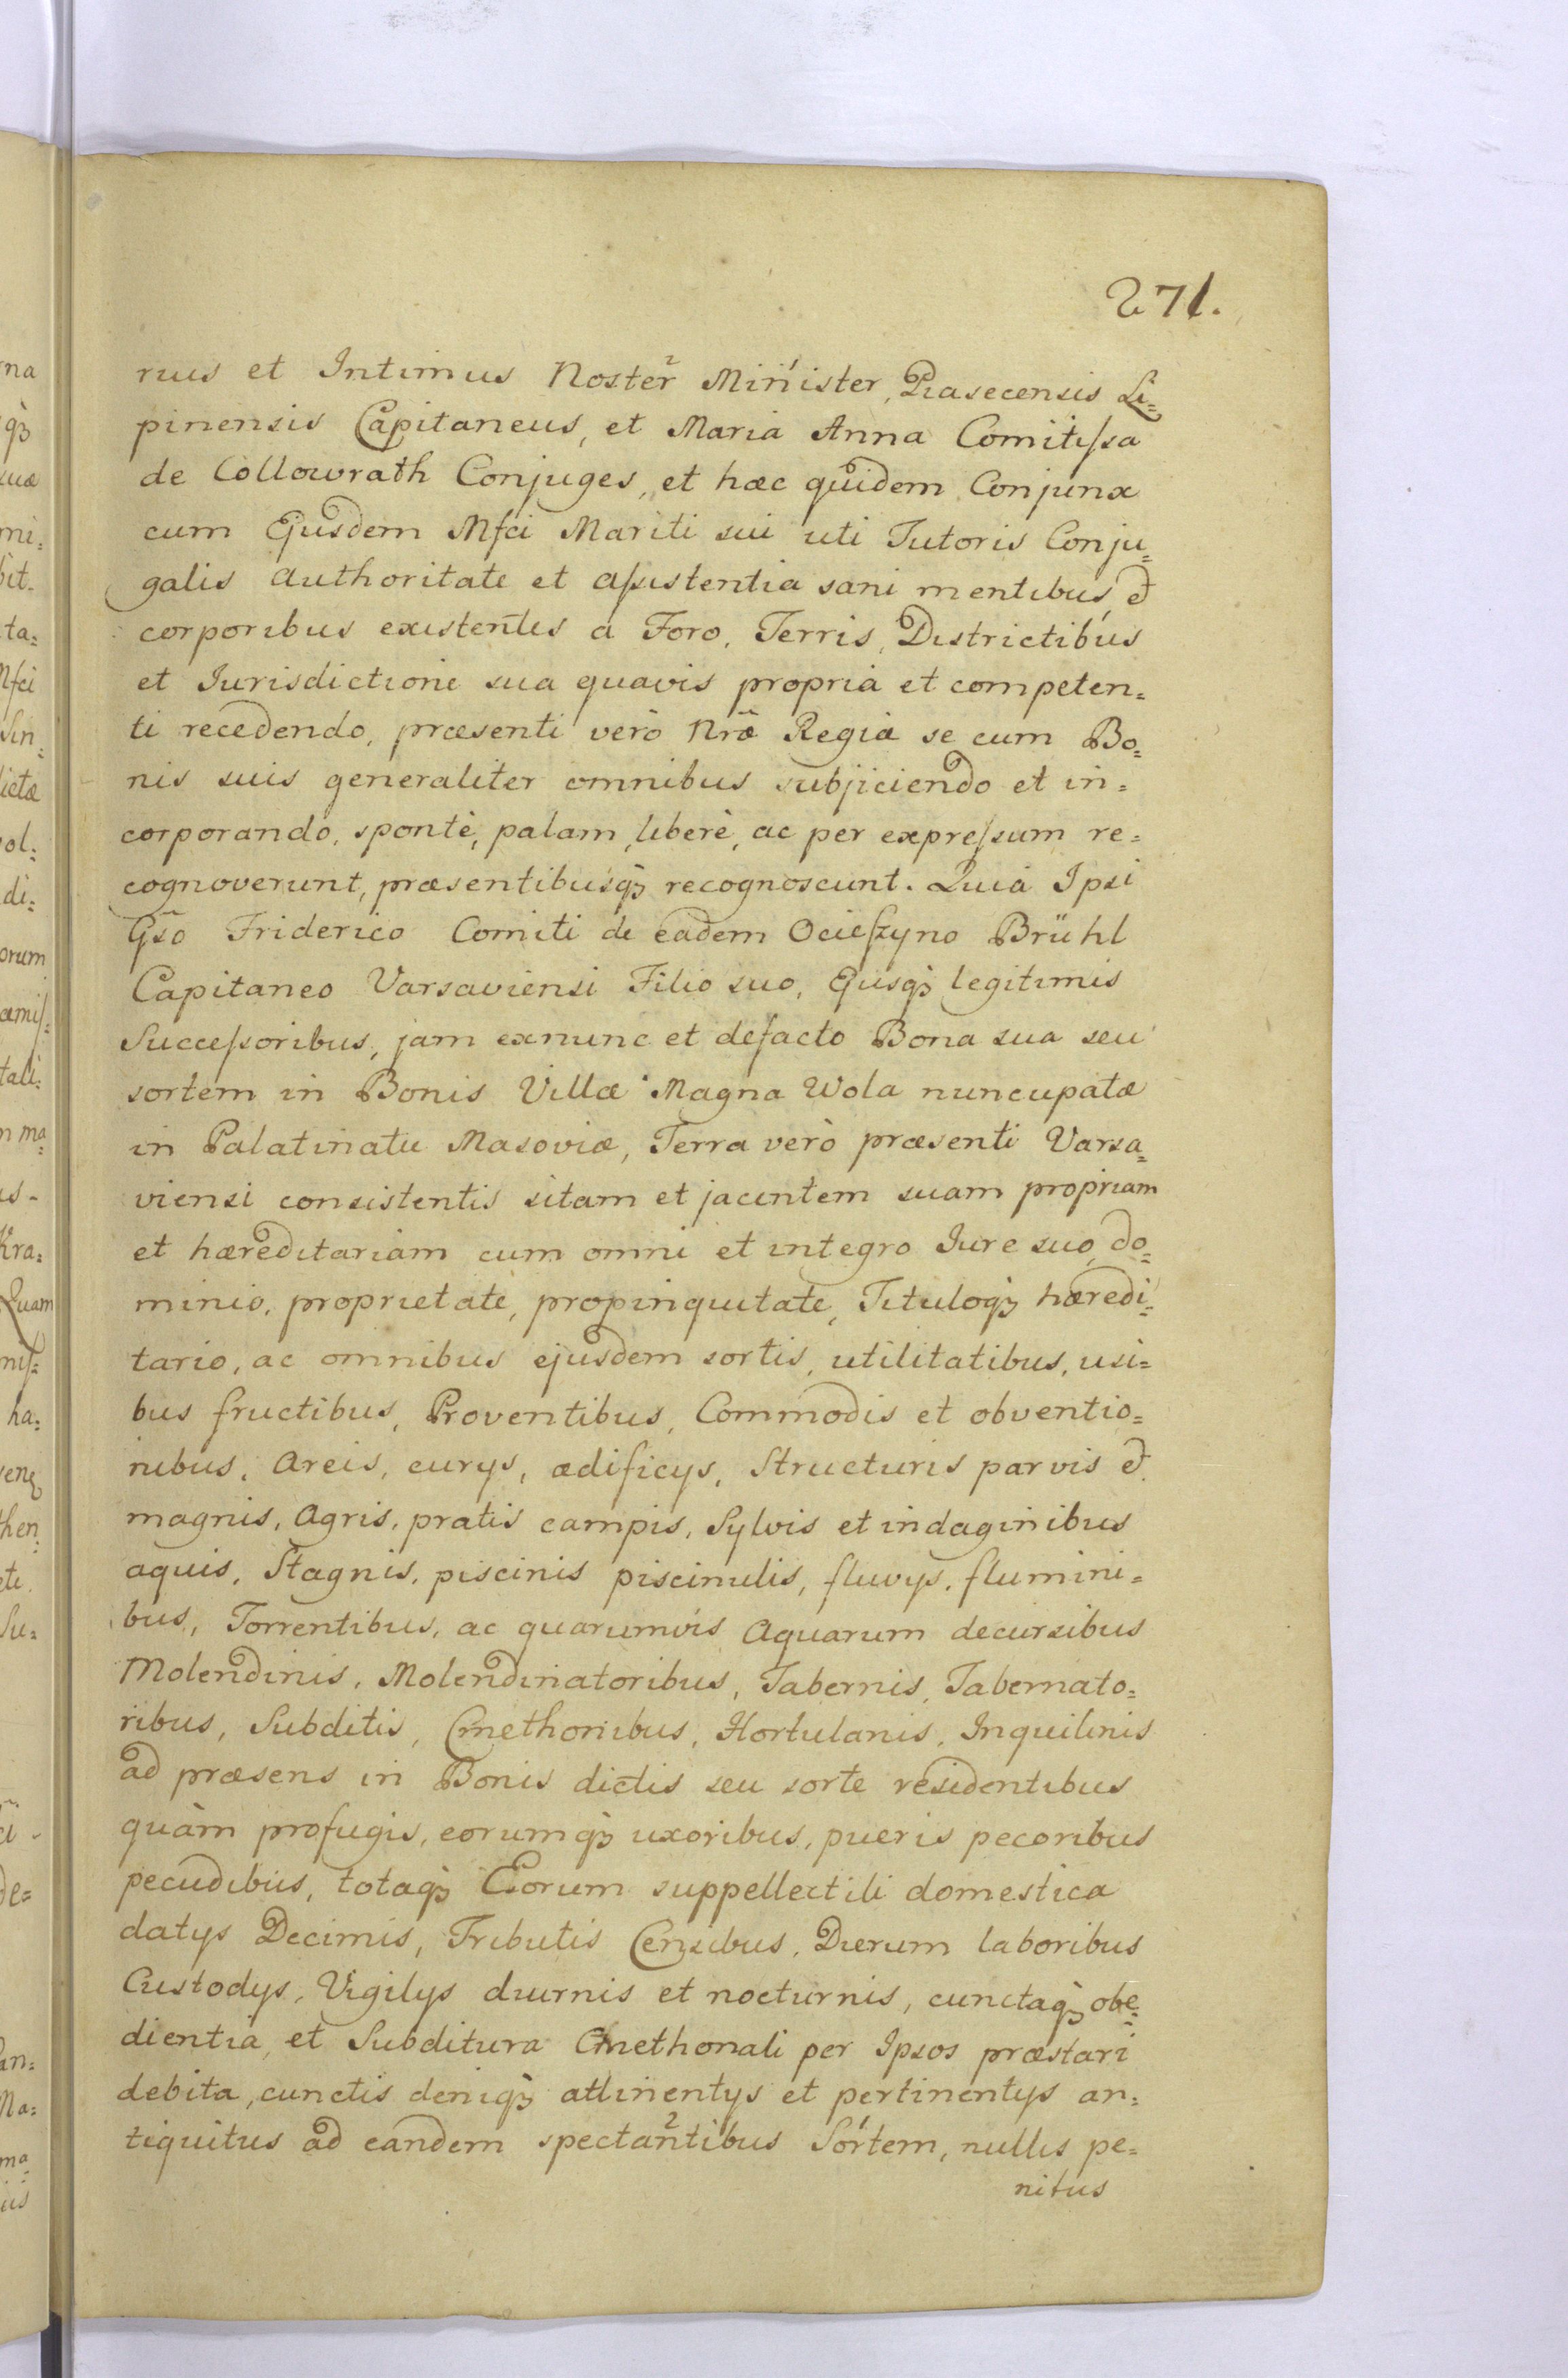 271.
rius et Intimus Noster² Mi¹nister, Piasecensis Li=
pinensis Capitaneus, et Maria Anna Comitiſsa
de Collowrath Conjuges, et hæc quidem Conjunx
cum Ejusdem Mfci Mariti sui uti Tutoris Conju=
galis authoritate et aſsistentia sani mentibus, et
corporibus existen̄tes a Foro, Terris, Districtibus
et Iurisdictione sua quavis propria et competen=
ti recedendo, præsenti verò Nr̃æ Regia se cum Bo=
nis suis generaliter omnibus subjiciendo et in=
corporando, spontè, palam, liberè, ac per expreſsum re=
cognoverunt, præsentibusqꝫ recognoscunt. Quia Ipsi
Gs̃o Friderico Comiti de eadem Ocieſzyno Brühl
Capitaneo Varsaviensi Filio suo, Ejusqꝫ legitimis
Succeſsoribus, jam exnunc et defacto Bona sua seu
sortem in Bonis Villæ Magna Wola nuncupatæ
in Palatinatu Masoviæ, Terra verò præsenti Varsa=
viensi consistentis sitam et jacentem suam propriam
et hæreditariam cum omni et integro Iure suo, do=
minio, proprietate, propinquitate, Tituloqꝫ hæredi=
tario, ac omnibus ejusdem sortis, utilitatibus, usi=
bus fructibus, Proventibus, Commodis et obventio=
nibus, Areis, curys, ædificys, Structuris parvis et
magnis, Agris, pratis campis, Sylvis et indaginibus
aquis, Stagnis, piscinis piscinulis, fluvys, flumini=
bus, Torrentibus, ac quarumvis Aquarum decursibus
Molendinis, Molendinatoribus, Tabernis, Tabernato=
ribus, Subditis, Cmethonibus, Hortulanis, Inquilinis
ad præsens in Bonis dictis seu sorte residentibus
quàm profugis, eorumqꝫ uxoribus, pueris pecoribus
pecudibus, totaqꝫ Eorum suppellectili domestica
datys Decimis, Tributis Censibus, Dierum laboribus
Custodys, Vigilys diurnis et nocturnis, cunctaqꝫ obe=
dientia, et Subditura Cmethonali per Ipsos præstari
debita, cunctis deniqꝫ attinentys et pertinentys an=
tiquitus ad eandem spectantibus² Sor¹tem, nullis pe=
nitus